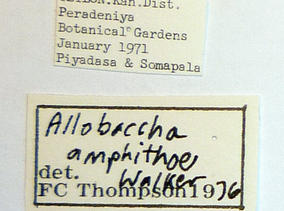 CEYLON.Kan.Dist.
Peradeniya
Botanical Gardens
January 1971
Piyadasa & Somapala
Allobaccha
amphithoe
Walker
det.
FC Thompson1976